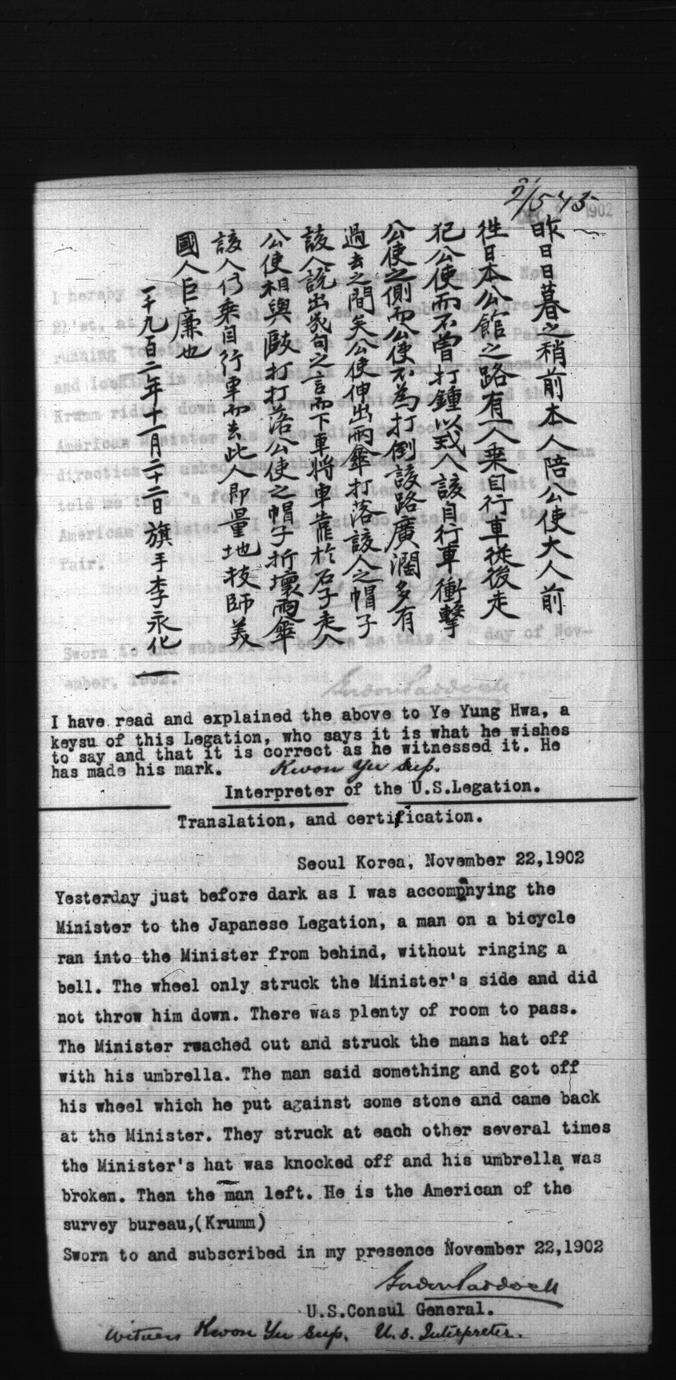 2/543
1902
昨日日暮之稍前本人陪公使大人前
徃日本公館之路有一人乘自行車從後走
犯公使而不曾打鍾以戒人該自行車衝擊
公使之側而公使不為打倒該路廣濶多有
過去之間矣公使伸出雨傘打落該人之帽子
該人說出幾句之言而下車將車靠於石子走入
公使相與敺打打落公使之帽子折壞雨傘
該人仍乘自行車而去此人即量地技師美
國人巨廉也
一千九百二年十一月二十二日旗手李永化
I have read and explained the above to Ye Yung Hwa, a
keysu of this Legation, who says it is what he wishes
to say and that it is correct as he witnessed it. He
has made his mark. Kwon Yu Sup.
Interpreter of the U.S.Legation.
Translation, and certification.
Seoul Korea, November 22,1902
Yesterday just before dark as I was accompnying the
Minister to the Japanese Legation, a man on a bicycle
ran into the Minister from behind, without ringing a
bell. The wheel only struck the Minister's side and did
not throw him down. There was plenty of room to pass.
The Minister rwached out and struck the mans hat off
with his umbrella. The man said something and got off
his wheel which he put against some stone and came back
at the Minister. They struck at each other several times
the Minister's hat was knocked off and his umbrella was
broken. Then the man left. He is the American of the
survey bureau,(Krumm)
Sworn to and subscribed in my presence November 22,1902
Gordon Paddock
U.S.Consul General.
Witness Kwon Yu Sup. U.S. Interpreter.